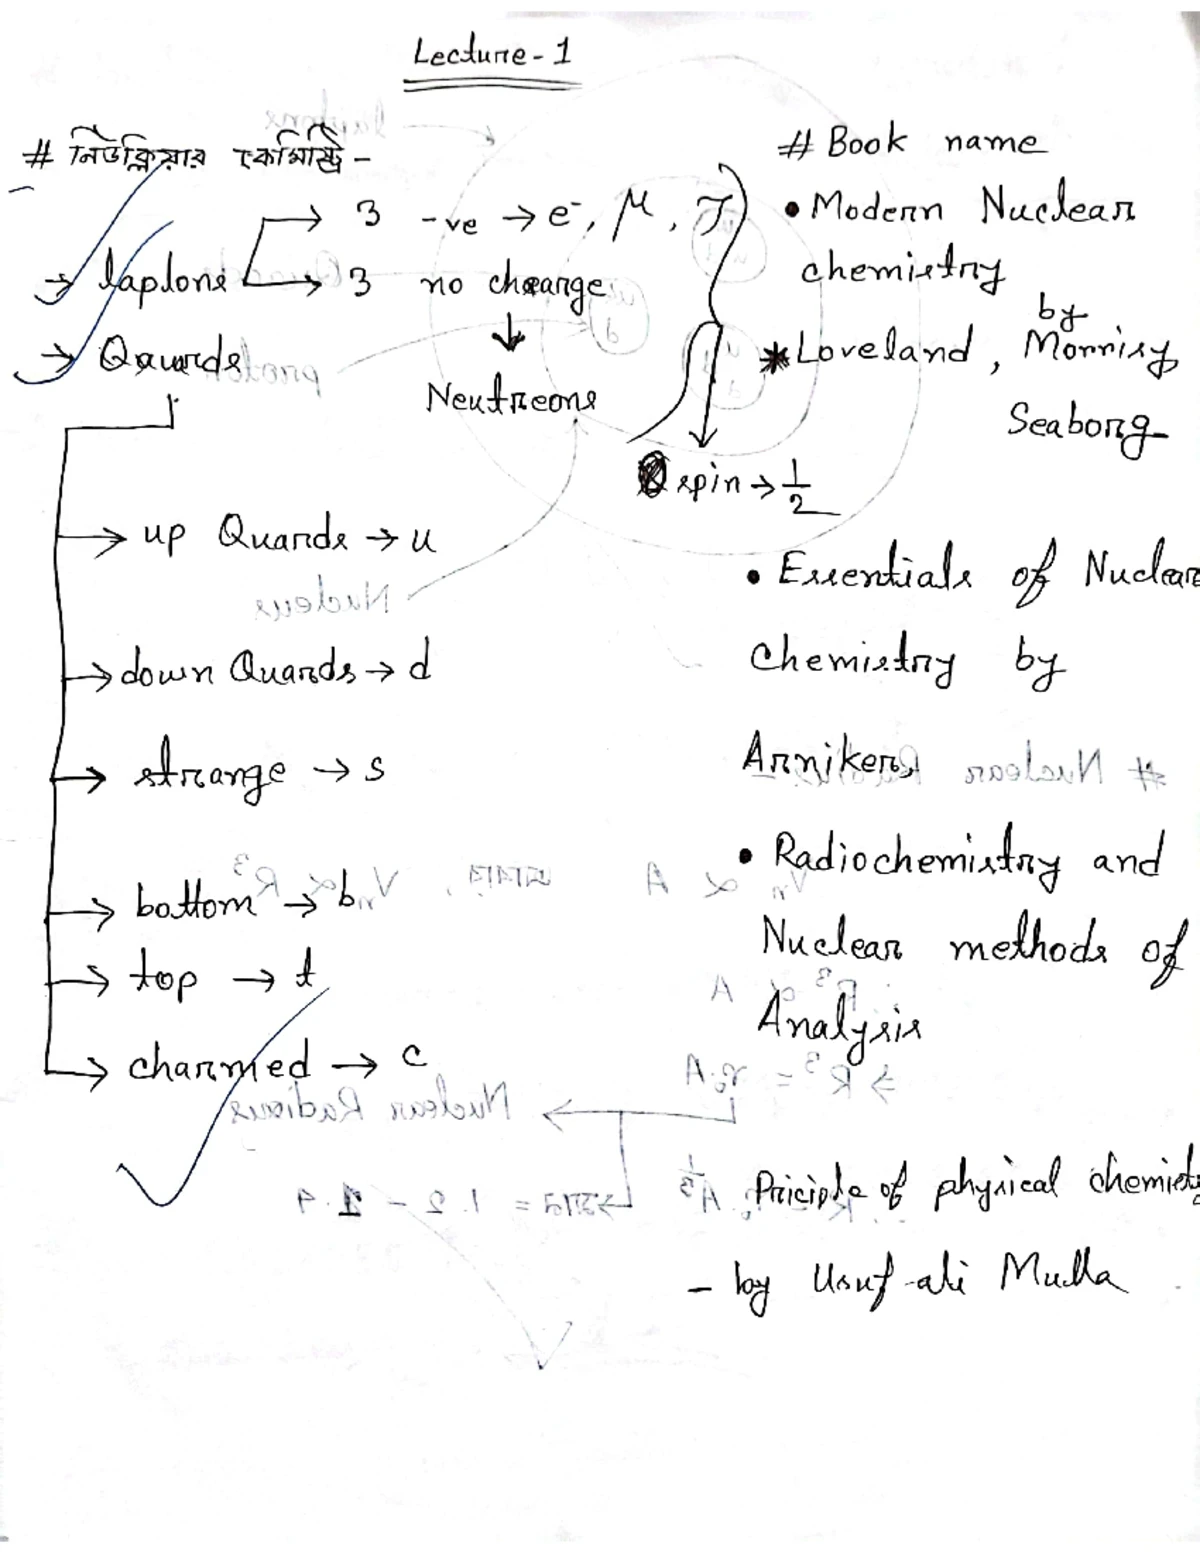 Lecture-1
# নিউক্লিয়ার কেমিস্ট্রি -
→ laptons → 3 -ve → e⁻, μ, τ
→ 3 no charge
↓
Neutreons
spin → 1/2
→ Qaurds
→ up Quards → u
→ down Quards → d
→ strange → s
→ bottom → b
→ top → t
→ charmed → c
# Book name
• Modern Nuclear
chemistry
by
* Loveland, Morrisy
Seaborg
• Essentials of Nuclear
Chemistry by
Arniker,
• Radiochemistry and
Nuclear methods of
Analysis
Priciple of physical chemist
- by Usuf-ali Mulla